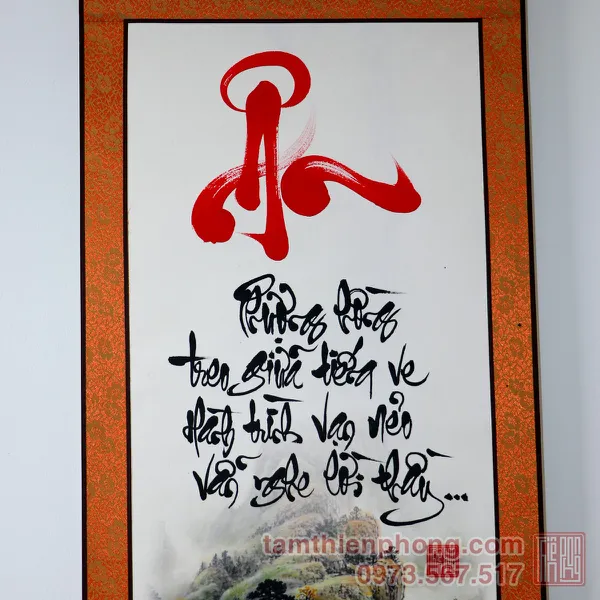 Ân
Phượng hồng
treo giữa tiếng ve
Hành trình vạn nẻo
vẫn nghe lời thầy...
tamthienphong.com
0373.567.517